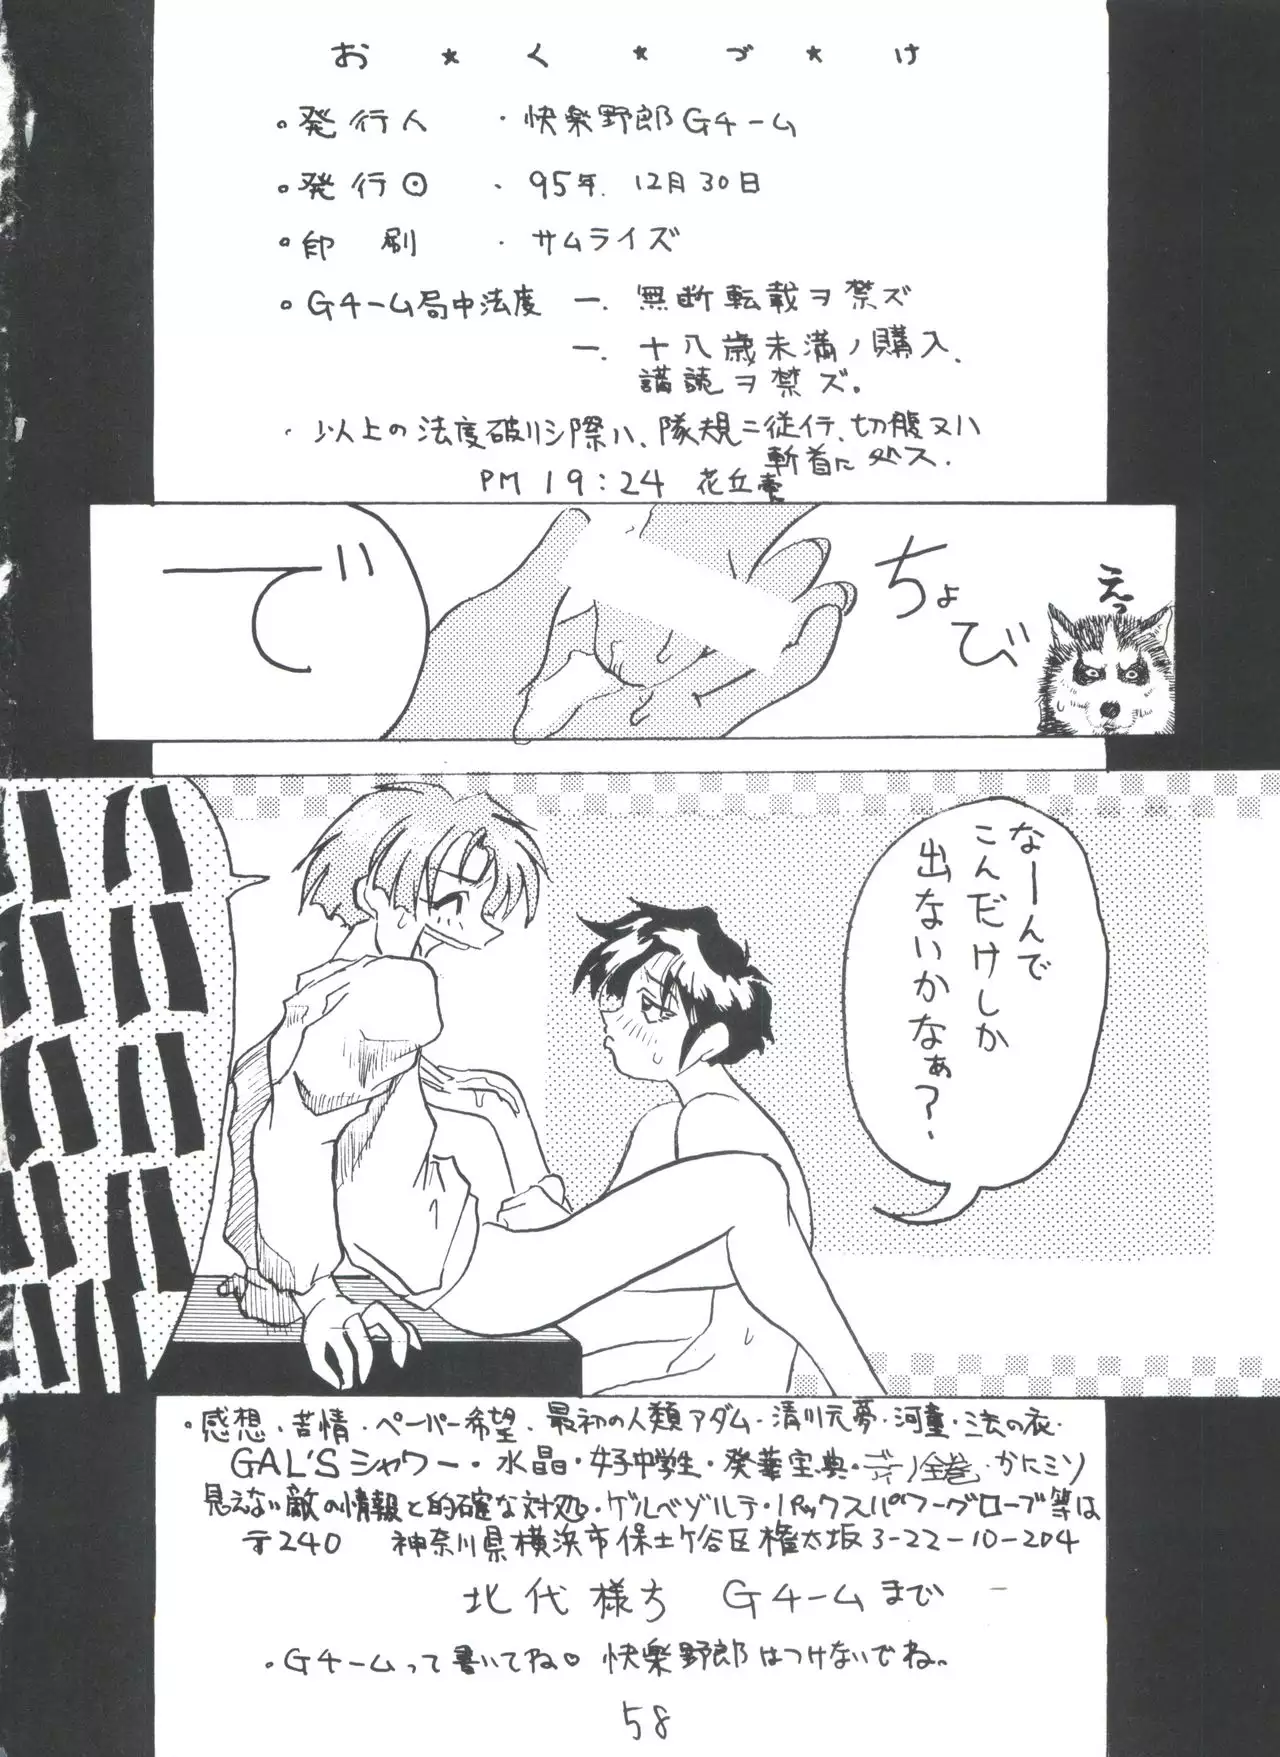 お★く★づ★け
・発行人 ・快楽野郎Gチーム
・発行日 ・95年.12月30日
・印刷 ・サムライズ
・Gチーム局中法度 一.無断転載ヲ禁ズ
一.十八歳未満ノ購入、
講読ヲ禁ズ。
・以上の法度破リシ際ハ、隊規ニ従イテ、切腹又ハ
斬首に処ス.
PM 19:24 花丘壱
ちょび
えっ
で
なーんで
こんだけしか
出ないかなぁ?
・感想・苦情・ペーパー希望、最初の人類アダム・清川元夢・河童・三法の衣・
GAL'Sシャワー・水晶・女子中学生・発華宝典・全巻・かにミソ
見えない敵の情報と的確な対処・ゲルベゾルテ・パックスパワーグローブ等は
〒240 神奈川県横浜市保土ケ谷区権太坂3-22-10-204
北代様方 Gチームまで
・Gチームって書いてね♡ 快楽野郎はつけないでね。
58